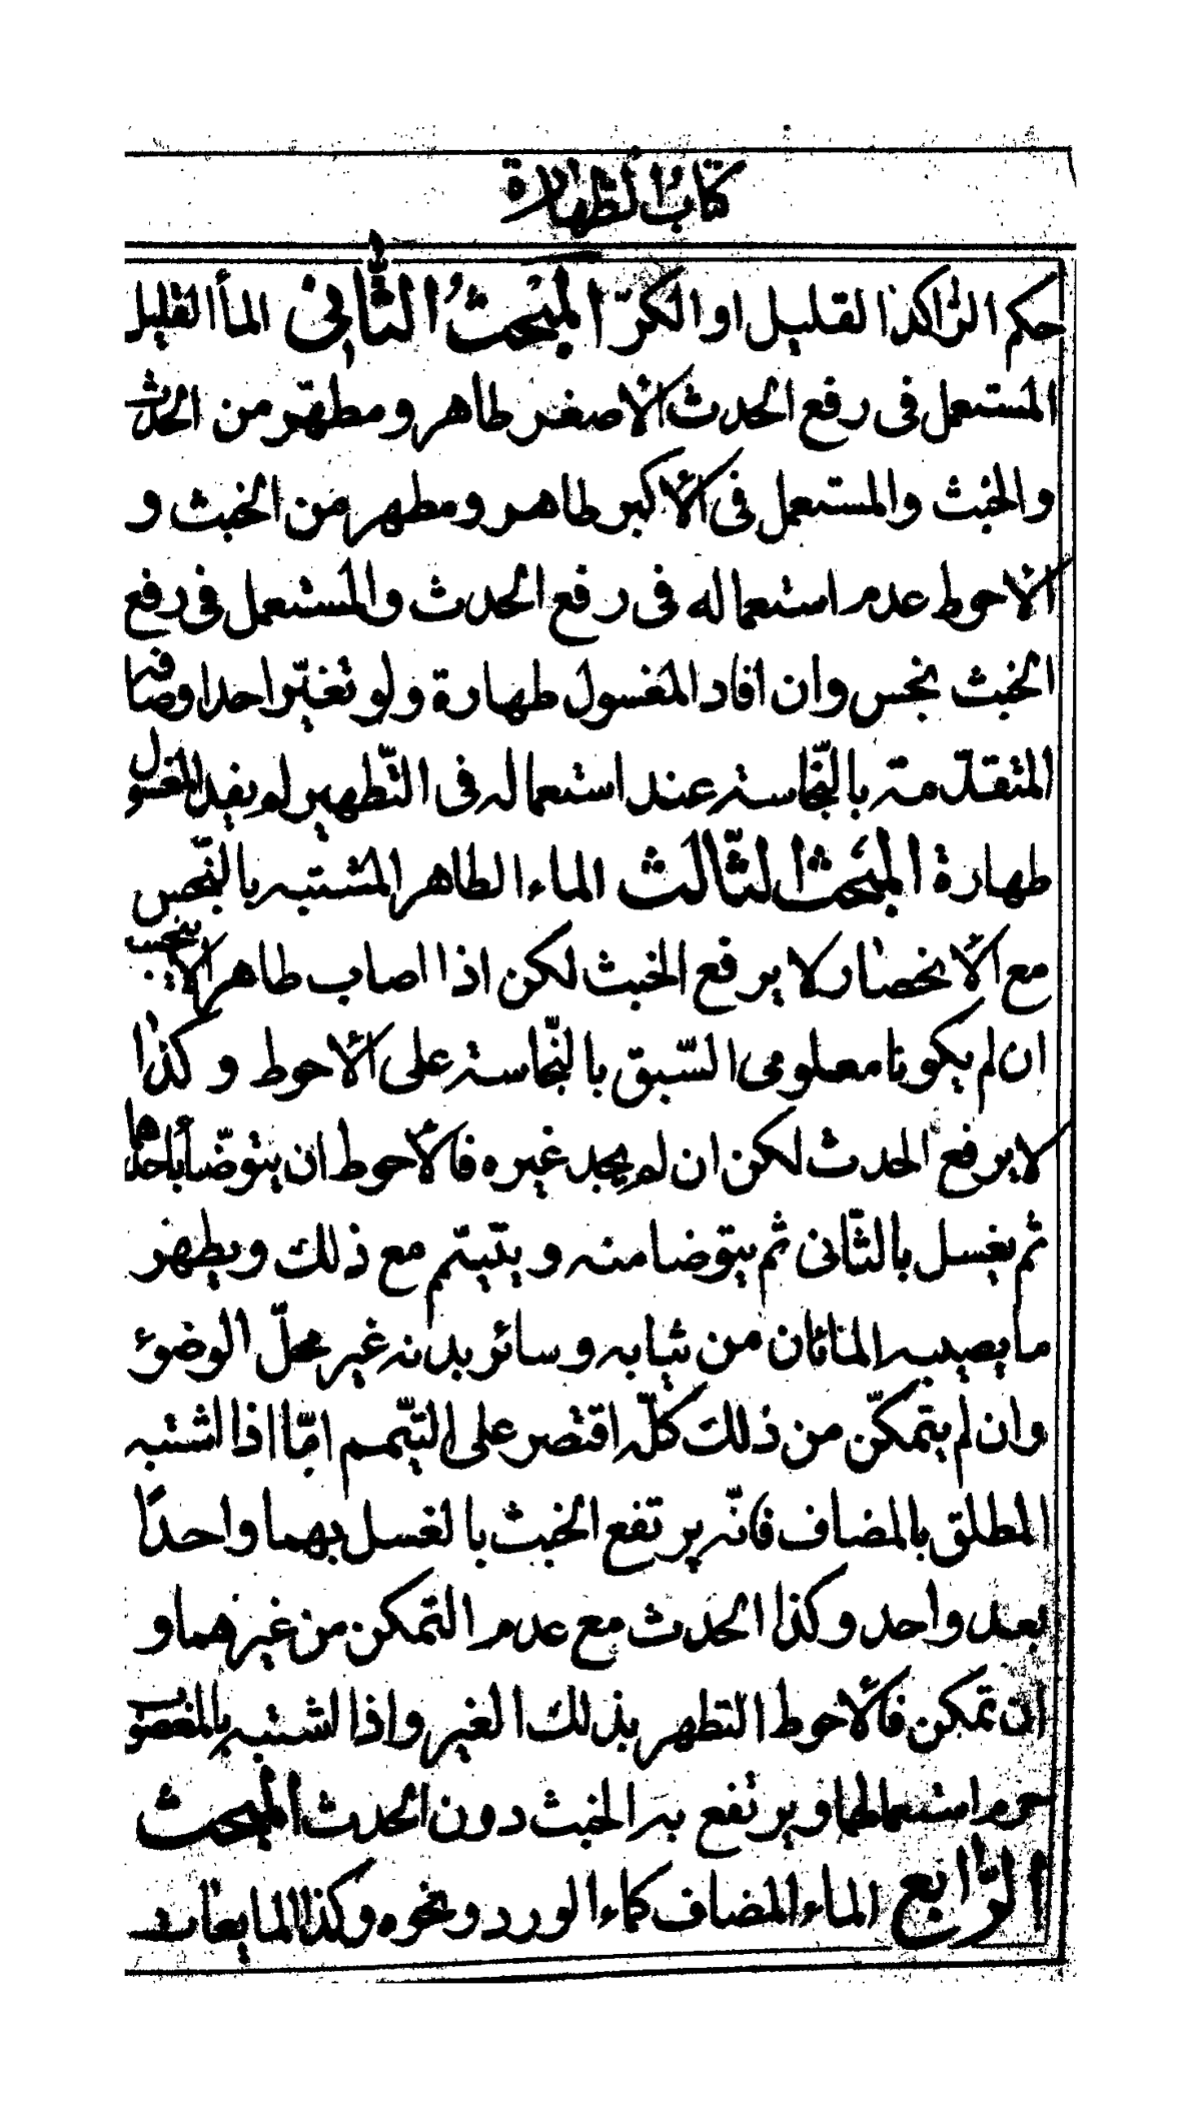 كتاب الطهارة
حكم الراكد القليل او الكرّ المبحث الثّاني المأ القليل
المستعمل فى رفع الحدث الأصغر طاهر ومطهّر من الحدث
والخبث والمستعمل فى الأكبر طاهر ومطهر من الخبث و
الأحوط عدم استعماله فى رفع الحدث والمستعمل فى رفع
الخبث نجس وان افاد المغسول طهارة ولو تغيّر احد اوصافه
المتقدّمة بالنّجاسة عند استعماله فى التّطهير لم يفد المغسول
طهارة المبحث الثّالث الماء الطاهر المشتبه بالنّجس
مع الأنحصار لا يرفع الخبث لكن اذا اصاب طاهرا لا ينجّسه
ان لم يكونا معلومى السّبق بالنّجاسة على الأحوط وكذا
لا يرفع الحدث لكن ان لم يجد غيره فالأحوط ان يتوضّأ باحدهما
ثم يغسل بالثّانى ثم يتوضا منه ويتيمّم مع ذلك ويطهر
ما يصيبه المائان من ثيابه وسائر بدنه غير محلّ الوضوء
وان لم يتمكّن من ذلك كلّه اقتصر على التيّمم امّا اذا اشتبه
المطلق بالمضاف فانّه يرتفع الخبث بالغسل بهما واحدًا
بعد واحد وكذا الحدث مع عدم التمكن من غيرهما و
ان تمكن فالأحوط التطهر بذلك الغير واذا اشتبه بالمغصوب
حرم استعمالهما ويرتفع به الخبث دون الحدث المبحث
الرّابع الماء المضاف كماء الورد ونحوه وكذا المايعات